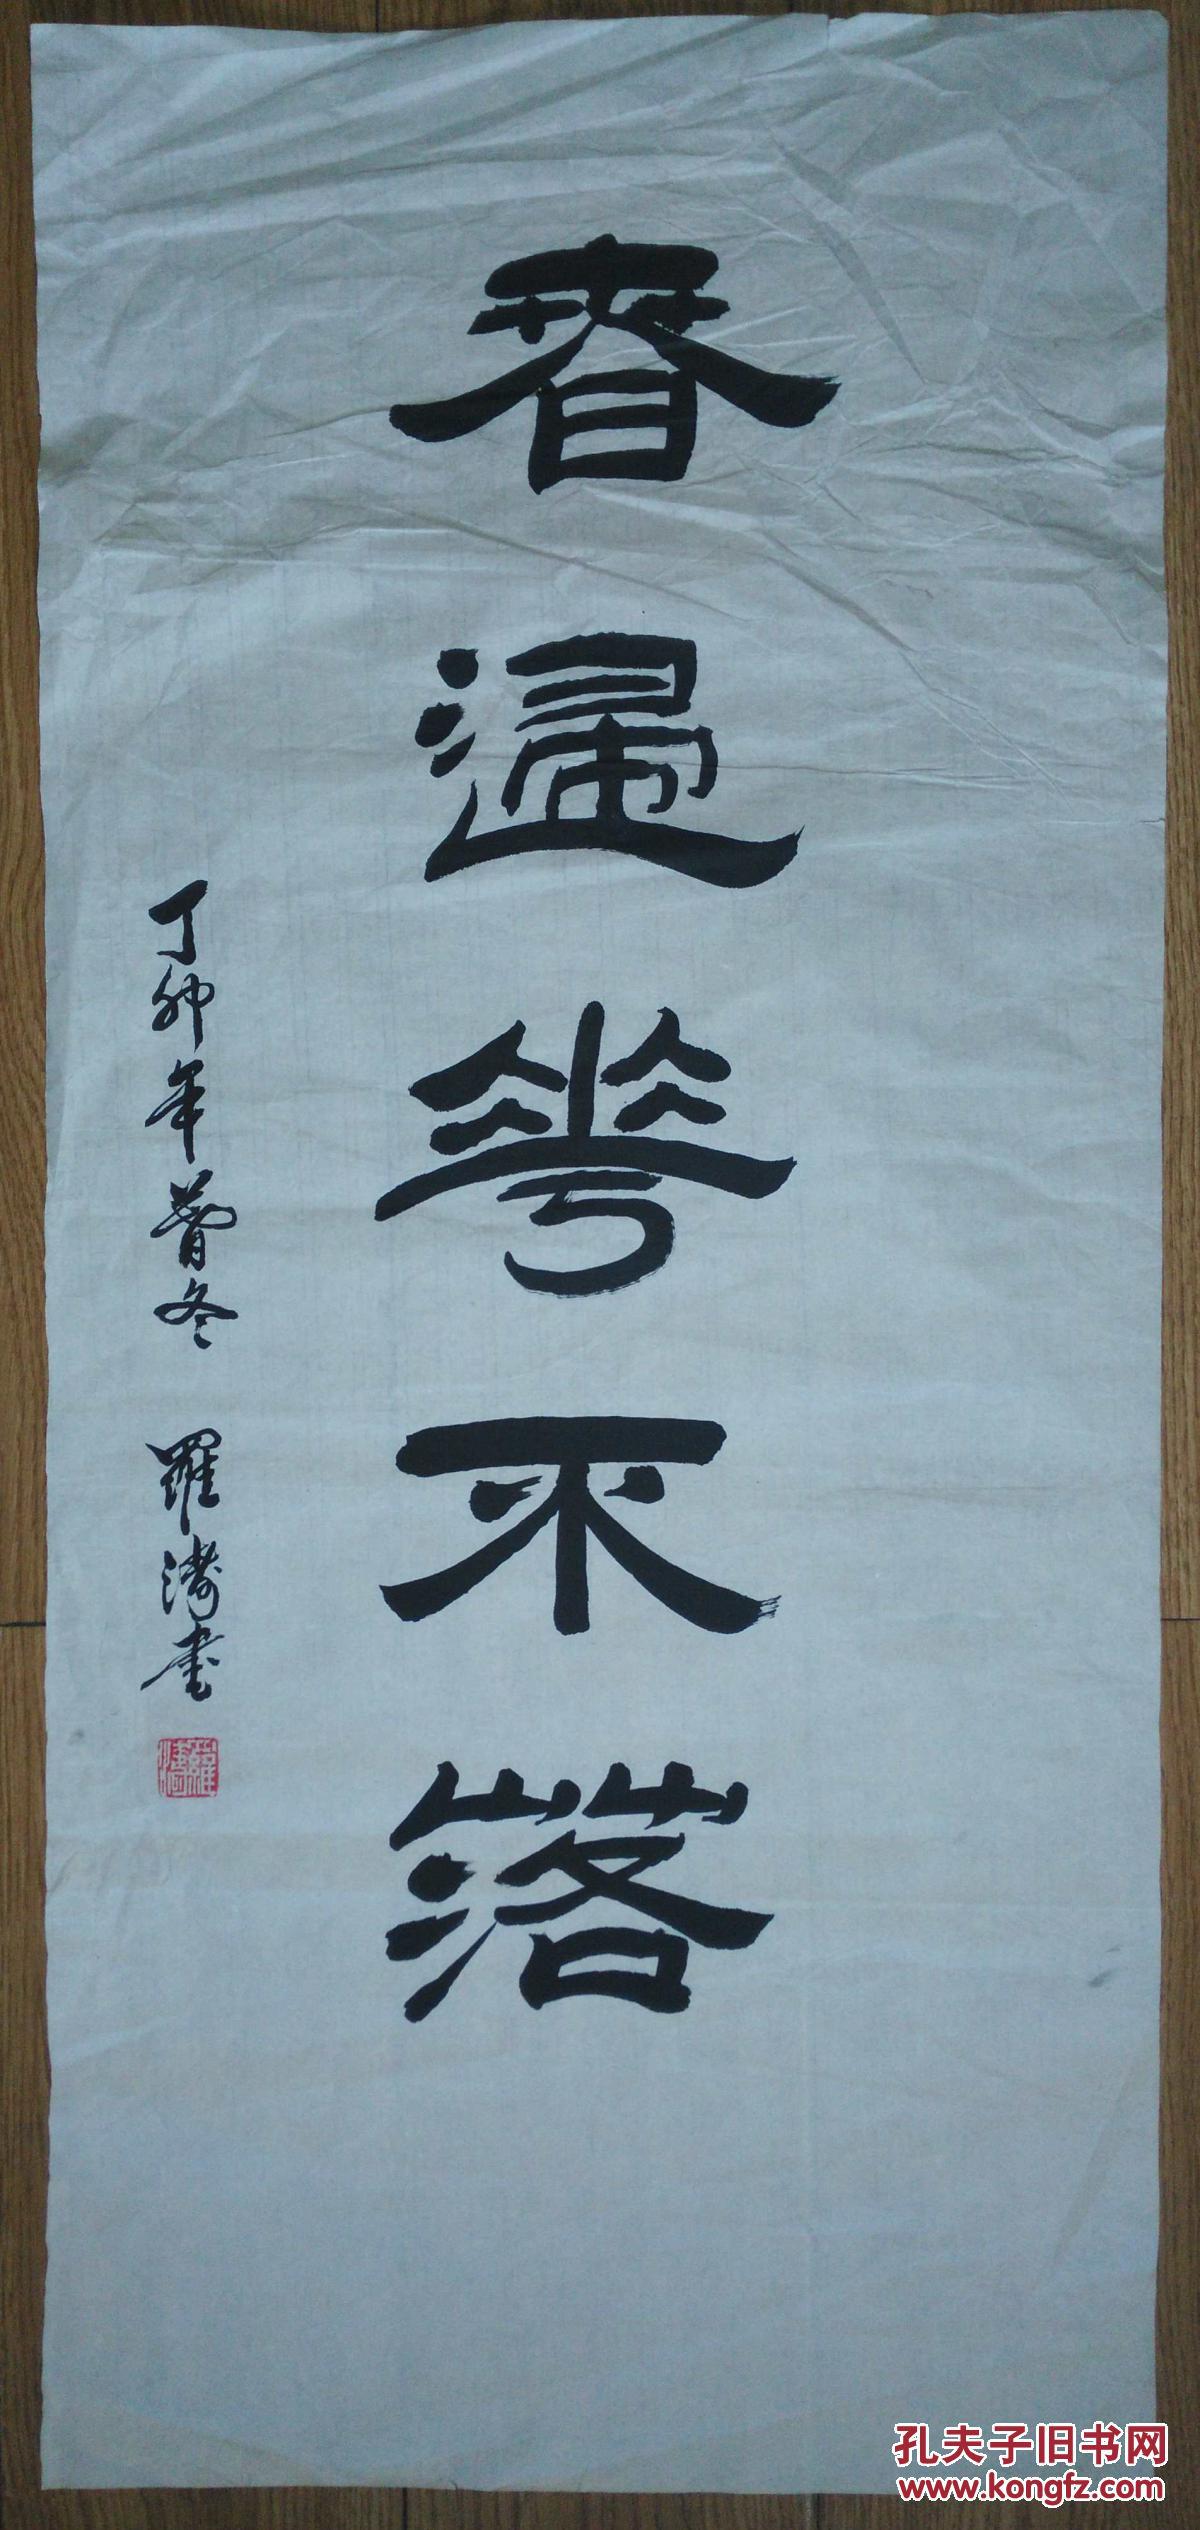 春歸華不落
丁卯年暮冬 羅濤書
羅濤
孔夫子旧书网
www.kongfz.com